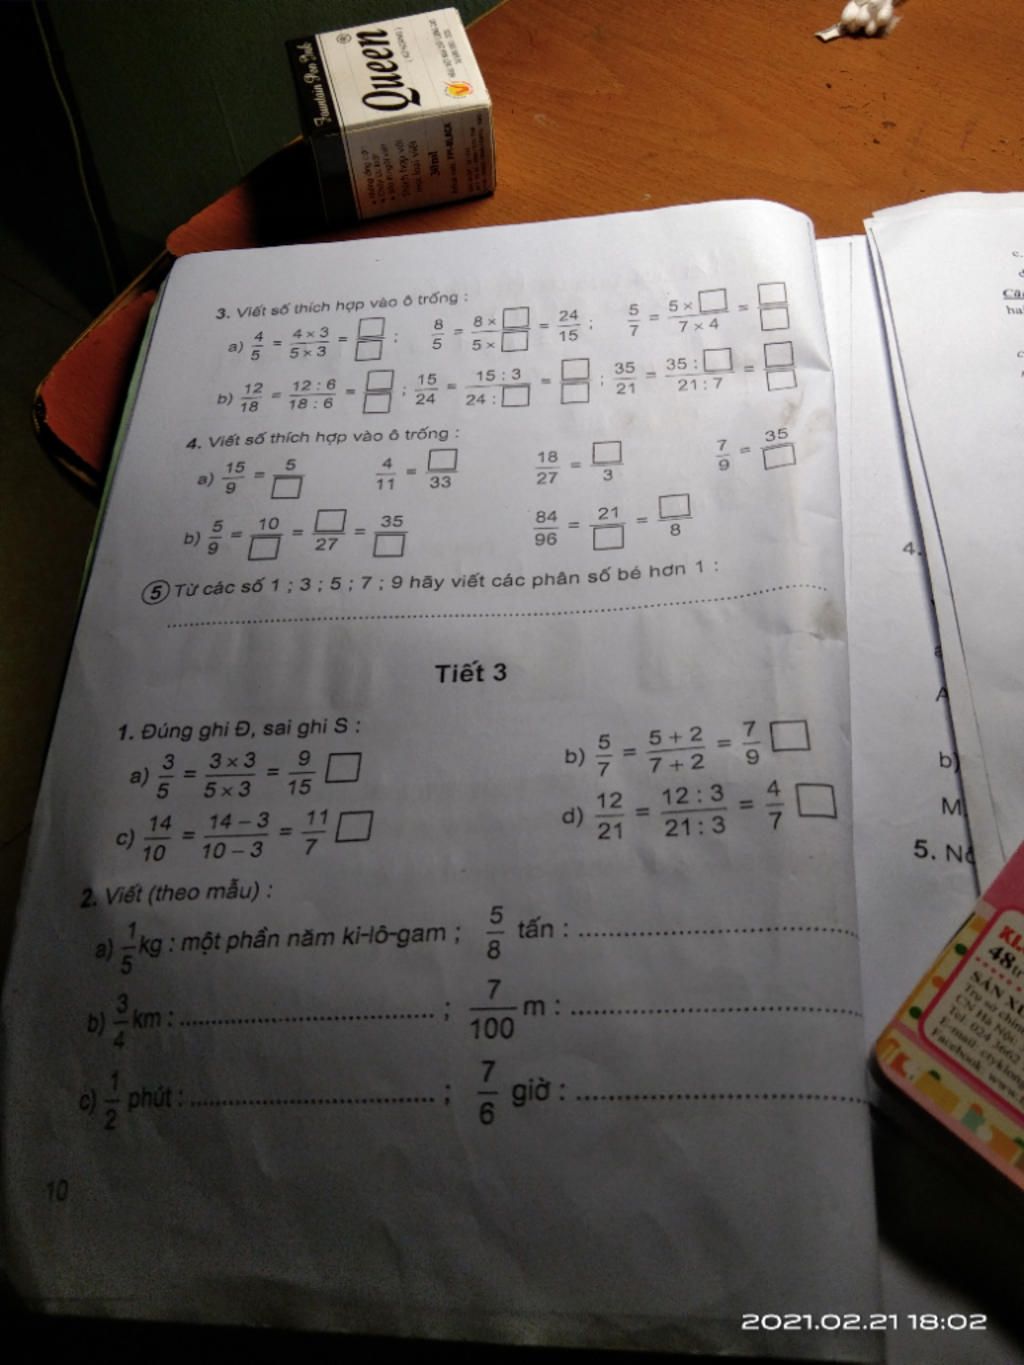 Fountain Pen Ink
Queen
®
30ml
3. Viết số thích hợp vào ô trống :
a) 4/5 = 4 × 3/5 × 3 = □/□ ; 8/5 = 8 × □/5 × □ = 24/15 ; 5/7 = 5 × □/7 × 4 = □/□
b) 12/18 = 12 : 6/18 : 6 = □/□ ; 15/24 = 15 : 3/24 : □ = □/□ ; 35/21 = 35 : □/21 : 7 = □/□
4. Viết số thích hợp vào ô trống :
a) 15/9 = 5/□ 4/11 = □/33 18/27 = □/3 7/9 = 35/□
b) 5/9 = 10/□ = □/27 = 35/□ 84/96 = 21/□ = □/8
5 Từ các số 1 ; 3 ; 5 ; 7 ; 9 hãy viết các phân số bé hơn 1 :
Tiết 3
1. Đúng ghi Đ, sai ghi S :
a) 3/5 = 3 × 3/5 × 3 = 9/15 □ b) 5/7 = 5 + 2/7 + 2 = 7/9 □
c) 14/10 = 14 – 3/10 – 3 = 11/7 □ d) 12/21 = 12 : 3/21 : 3 = 4/7 □
2. Viết (theo mẫu) :
a) 1/5 kg : một phần năm ki-lô-gam ; 5/8 tấn :
b) 3/4 km : ; 7/100 m :
c) 1/2 phút : ; 7/6 giờ :
10
4.
b)
M
5.
48
SẢN
Trụ sở chính
CN Hà Nội:
Tel: 024 3662
E-mail:
Facebook: www.
2021.02.21 18:02